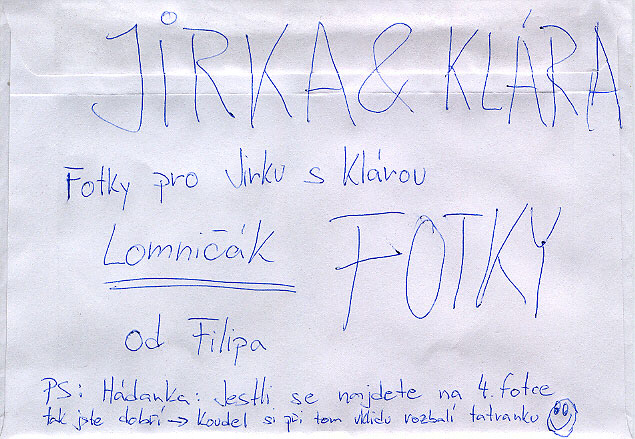 JIRKA & KLÁRA
Fotky pro Jirku s Klárou
Lomničák
FOTKY
od Filipa
PS: Hádanka: Jestli se najdete na 4. fotce
tak jste dobří → Koudel si při tom vklidu rozbalí tatranku